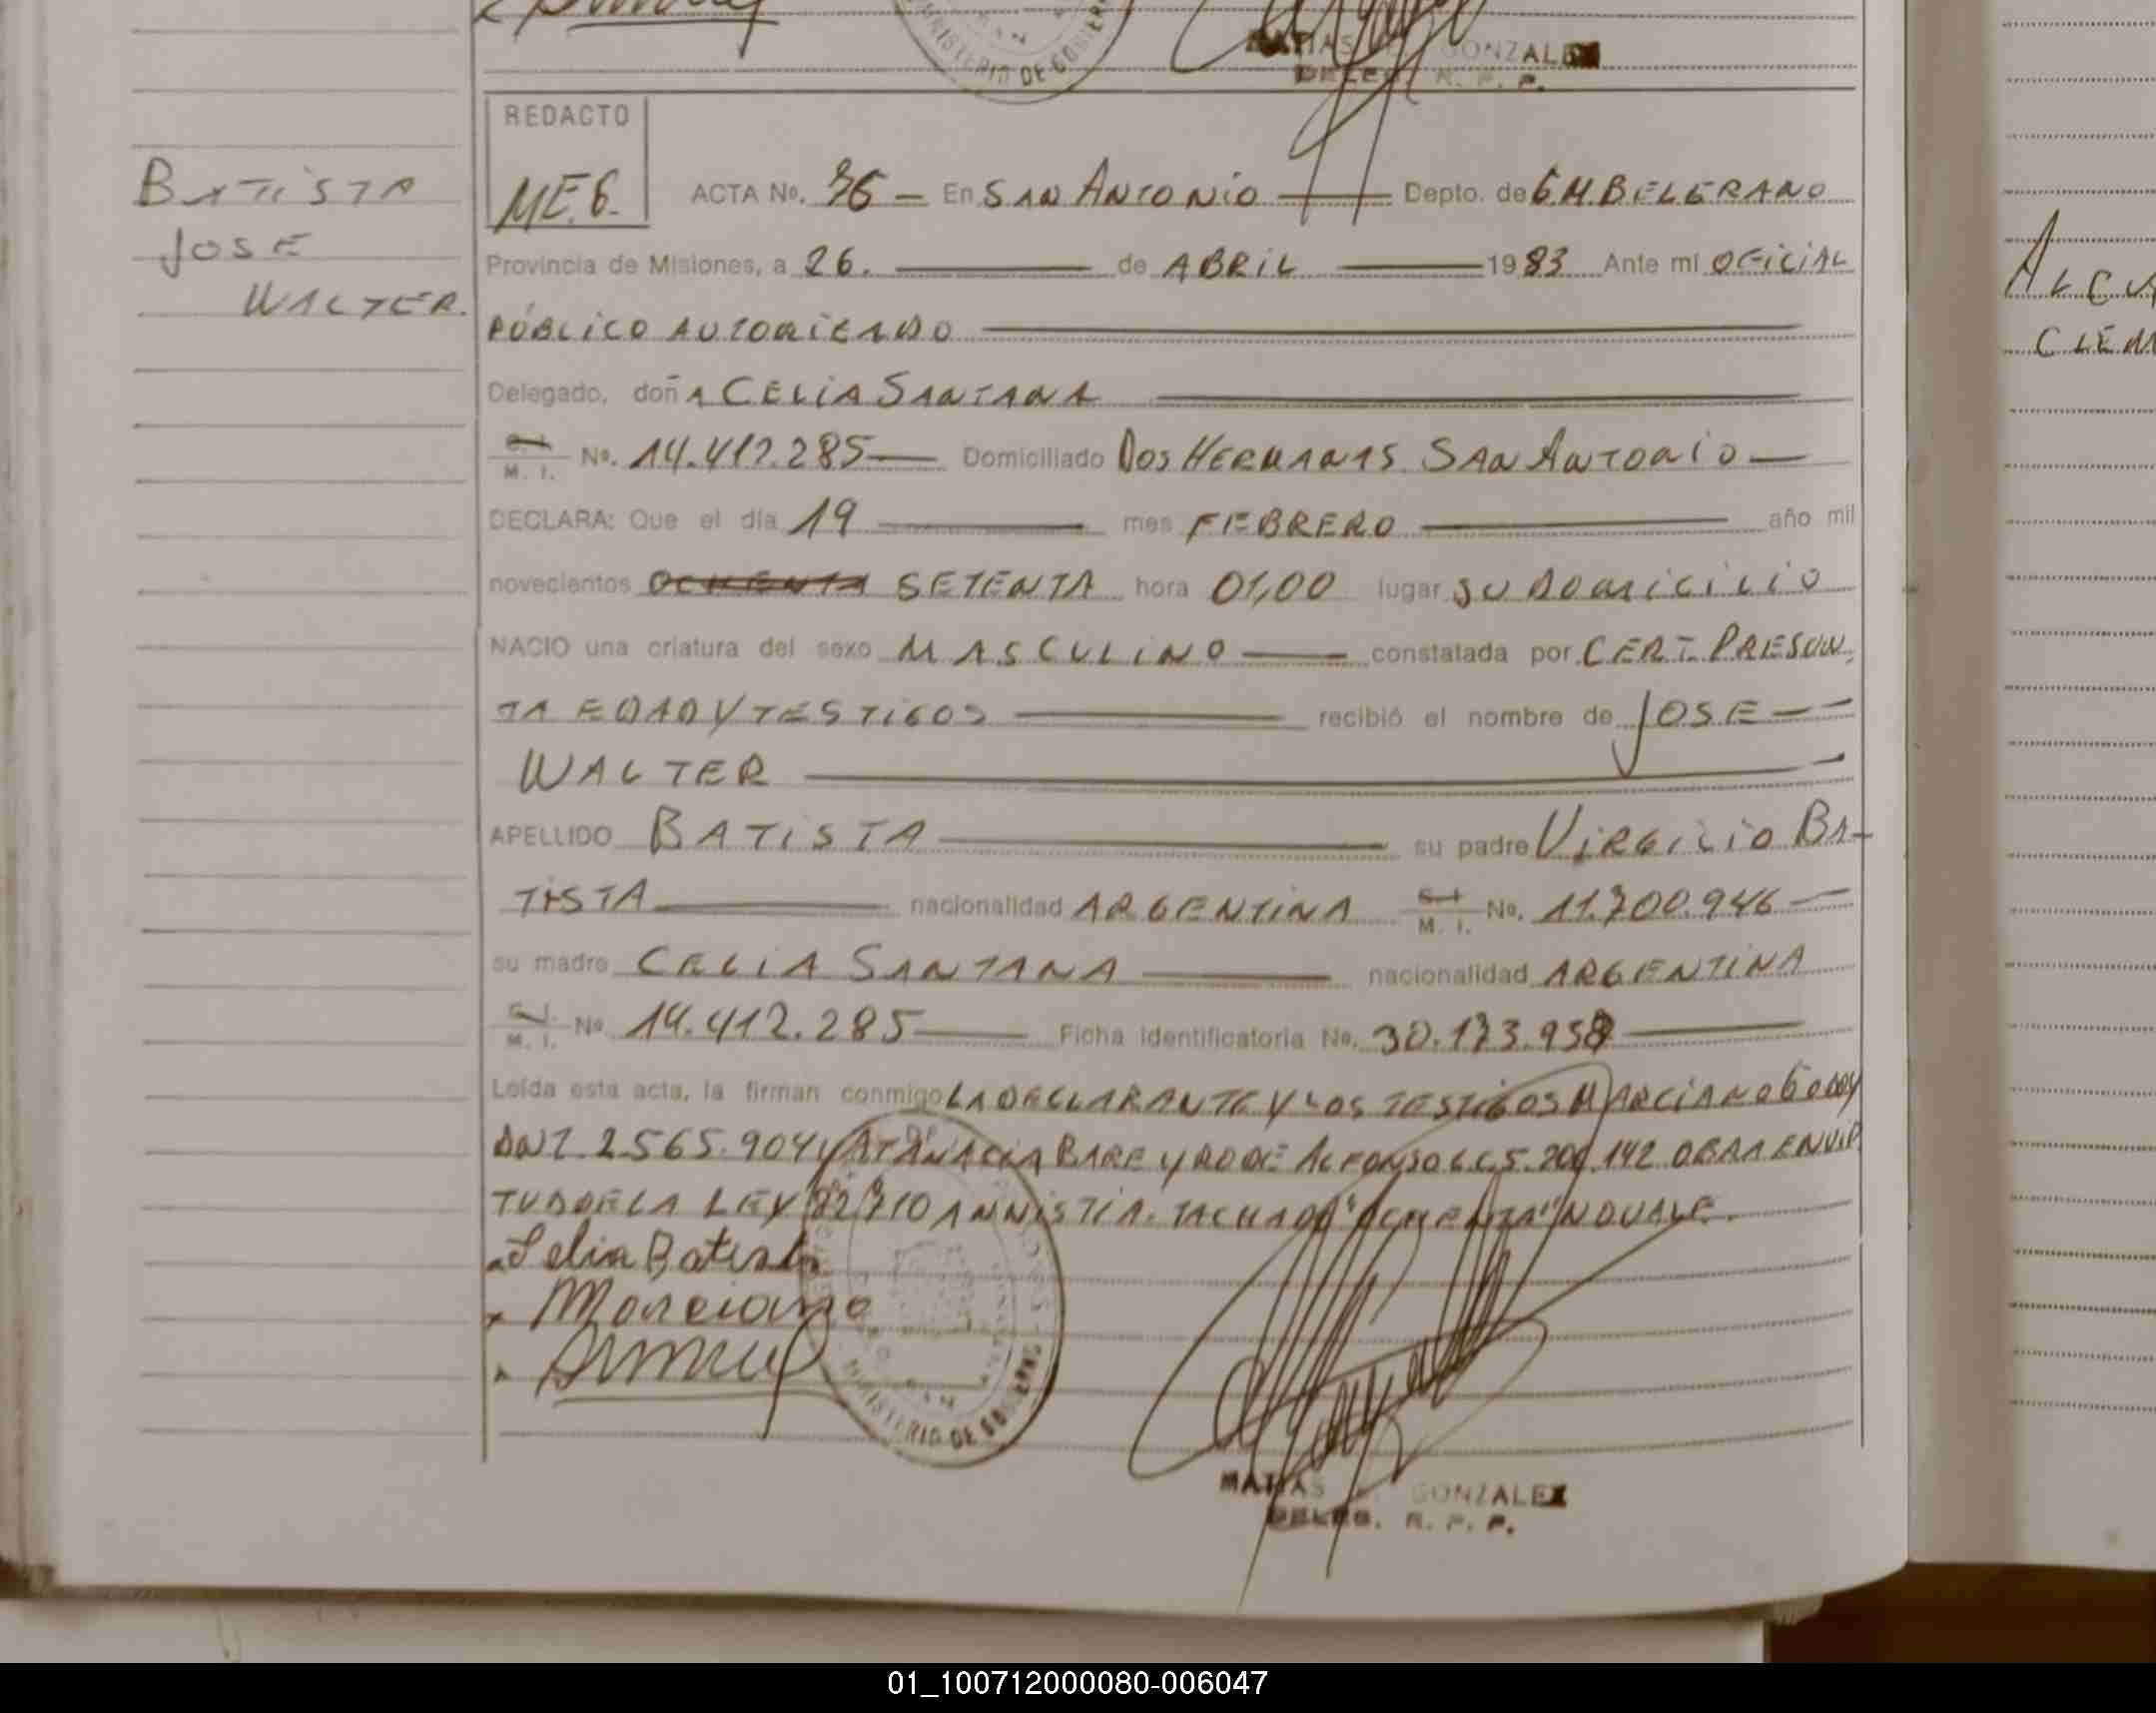 MINISTERIO DE GOBIER
MATIAS GONZALEZ
DELEG. R. P. P.
REDACTO
ME.G.
BATISTA
JOSE
WALTER.
ACTA No. 36 — En SAN ANTONIO — Depto. de G.M.BELGRANO
Provincia de Misiones, a 26. — de ABRIL — 1983 Ante mi OFICIAL
PÚBLICO AUTORIZADO
Delegado, doñA CELIA SANTANA
C. I. / M. I. No. 14.412.285 — Domiciliado DOS HERMANAS SAN ANTONIO —
DECLARA: Que el día 19 — mes FEBRERO — año mil
novecientos OCHENTA SETENTA hora 01,00 lugar SU DOMICILIO
NACIO una criatura del sexo MASCULINO — constatada por CERT. PRESUN
TA EDAD Y TESTIGOS — recibió el nombre de JOSE —
WALTER
APELLIDO BATISTA — su padre VIRGILIO BA-
TISTA — nacionalidad ARGENTINA C. I. / M. I. No. 11.700.946 —
su madre CELIA SANTANA — nacionalidad ARGENTINA
C. I. / M. I. No 14.412.285 — Ficha Identificatoria No. 30.173.958
Leída esta acta, la firman conmigo LA DECLARANTE Y LOS TESTIGOS MARCIANO GODOY
DNI. 2.565.904 Y ATANACIA BARE Y RO DE ALFONSO L.C. 5.200.142 OBRA EN VIR
TUD DE LA LEY 22.710 AMNISTIA. TACHADO "OCHENTA" NO VALE.
Selia Batista
Marciano
MINISTERIO DE GOBIERNO
MATIAS GONZALEZ
DELEG. R. P. P.
ALCA
CLEM
01_100712000080-006047